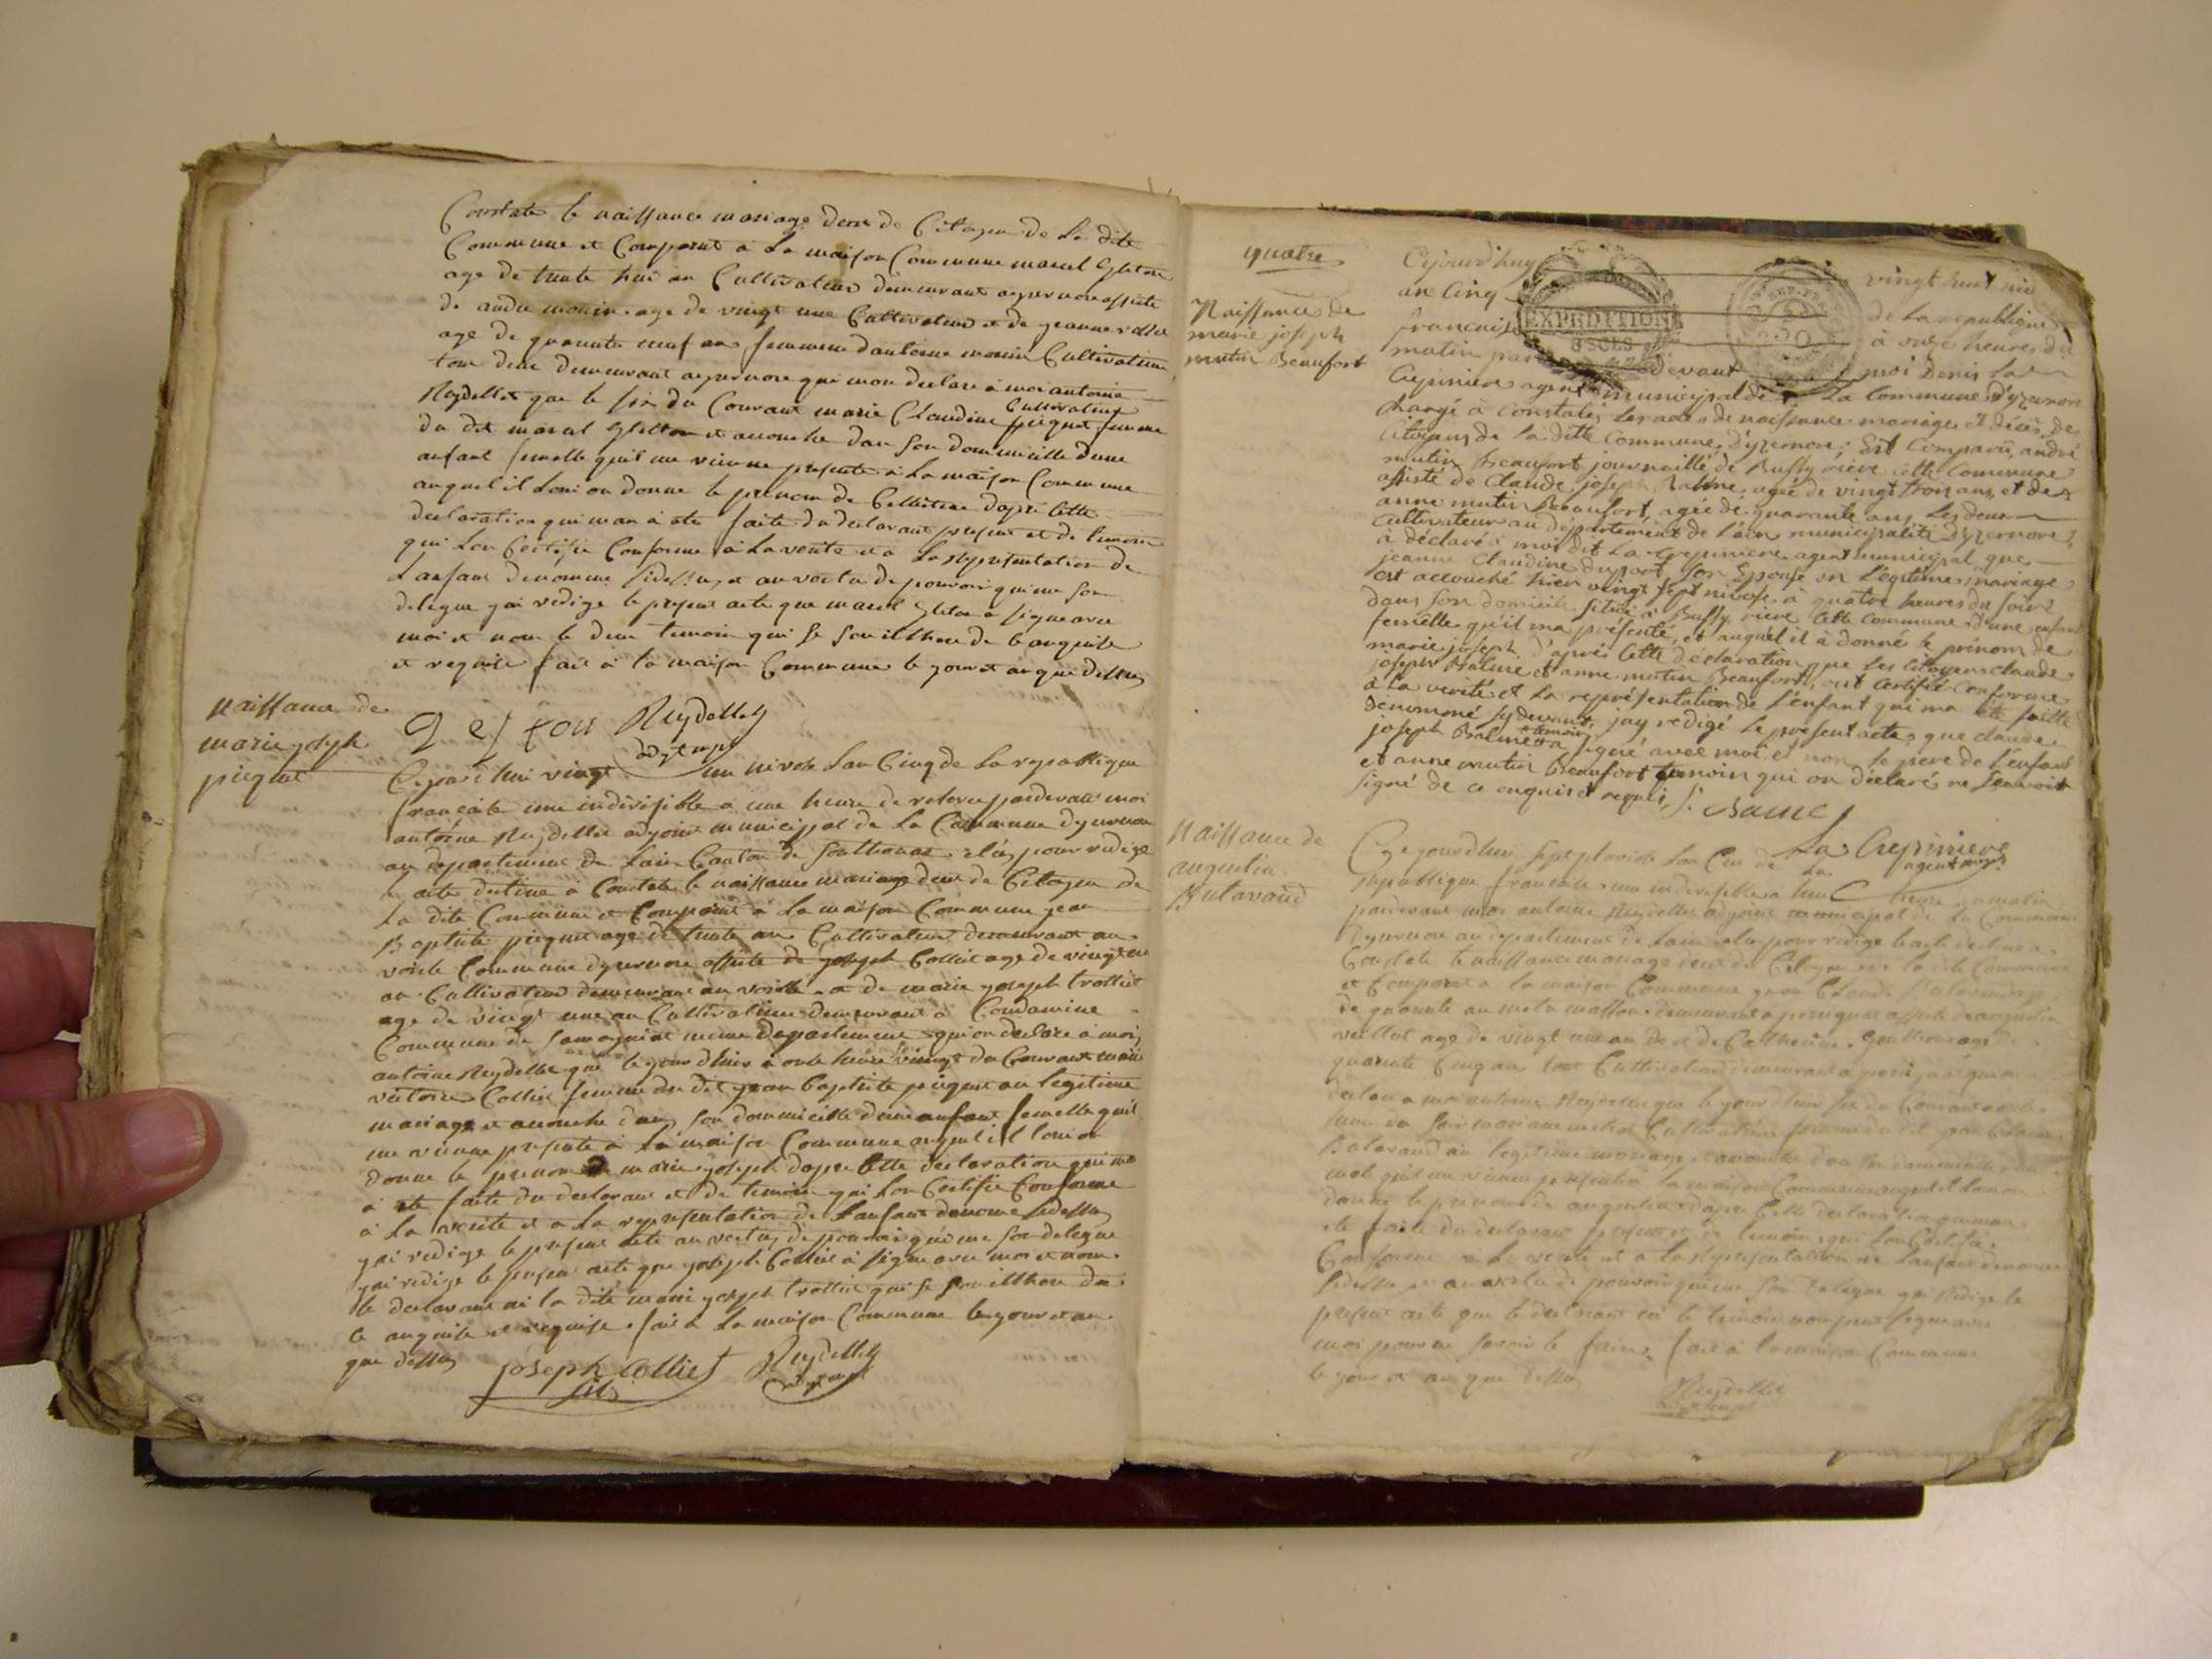 Constater le naissance mariage dece de Citoyen de la dite
Commune et Comparut a la maison Commune marcel Gletton
age de trente hui an Cultivateur demeurant a ysernore assisté
de andre monin age de vingt une Cultivateur et de jeanne
age de quarente neuf an femme dantoine monin Cultivateur
tour deux demeurant aysernore qui mon declare à moi antoine
Reydellet que le six du Courant marie Claudine piquet Cultivatrice femme
du dit marcel Gletton et acouche dan son dommicille dune
anfant femelle quil me vienne presente à la maison Commune
auquel il lui on donne le prenom de dapré Cette
declaration qui man à ete faite du declarant present et de temoin
qui lon Certifie Conforme à la verite et a la representation de
lanfant denomme sidessus et au vertu de pouvoir qui me son
delegue jai redige le present acte que marcel Gletton a signe avec
moi et non le deux temoin qui se son illthere de le anquite
et requite fait à la maison Commune le jour et an que dessus
g e f ton Reydellet
adjt mpl
naissance de
marie joseph
piquet
Cejourdhui vingt un nivose lan Cinq de la republique
francaise une indivisible a une heure de releve pardevant moi
antoine Reydellet adjoint municipal de la Commune dysernore
au departement de lain Canton de Sonthonax elu pour redige
le acte destine a Constate le naissance mariage dece de Citoyen de
la dite Commune et Comparut à la maison Commune jean
Baptiste piquet age de trente an Cultivateur demeurant au
voirle Commune dysernore assisté de joseph Collet age de vingt un
an Cultivateur demeurant au voirle et de marie joseph trollict
age de vingt une an Cultivatrice demeurant à Condamine
Commune de Samognat meme departement qui on declare a moi
antoine Reydellet que le jourdhui à onse heure vingt du Courant marie
victoire Collet femme du dit jean baptiste piquet an legitime
mariage et acouche dans son dommicille dune anfant femelle quil
me vienne presente à la maison Commune auquel il loui on
donne le prenom de marie joseph dapre Cette declaration qui ma
à ete faite du declarant et de temoin qui lon Certifie Conforme
a la verite et a la representation de lanfant denome sidessus
jai redige le present acte au vertus de pouvoir qui me son delegue
jai redige le present acte que joseph Collet à signe avec moi et non
le declarant ni la dite marie joseph trollict qui se son illthere du
le anquite et requise fait a la maison Commune le jour et an
que dessus joseph Colliet Reydellet
fils adjt mpl
quatre
Naissance de
marie joseph
mutin Beaufort
Cejourd'huy vingt huit niv
an Cinq de la republique
francaise à onze heures du
EXPEDITION
REP. FRA.
matin par devant moi Denis La
Crepiniere agent municipal de la Commune d'yzernore
chargé à constater les actes de naissance mariages et décès des
Citoyens de la ditte Commune d'yzernore; Est Comparu, andré
mutin Beaufort journaillé de Bussy riere cette Commune
assisté de Claude joseph Balme, agé de vingt trois ans, et de
anne mutin Beaufort, agée de quarante ans, les deux
Cultivateurs au département de l'ain municipalité d'yzernore
à déclaré à moi dit La Crepiniere agent municipal que
jeanne Claudine duport, son Epouse en légitime mariage
est accouché hier vingt sept nivose à quatre heures du soir
dans son domicile situé à Bussy riere cette Commune d'une enfant
femelle qu'il ma présenté, et auquel il à donné le prénom de
marie joseph d'après cette déclaration que les citoyens claude
joseph Balme et anne mutin Beaufort, ont certifié conforme
à la verité et la représentation de l'enfant qui ma été faitte
denommé sydevant, jay redigé le present acte, que claude
joseph Balme temoin a signé avec moi, et non le pere de l'enfant
et anne mutin Beaufort temoin qui on déclaré ne sçavoir
signé de ce enquis et requis J: Balme
La Crepiniere
agent mpl
Naissance de
augustin
Butavand
Cejourdhui sept pluviose lan Cin de la
republique francaise une indivisible a une heure du matin
pardevant moi antoine Reydellet adjoint municipal de la Commune
dysernore au departement de lain elu pour redige le acte destine a
Constate le naissance mariage dece de Citoyen de la dite Commune
et Comparut a la maison Commune jean Claude
de quarante an metre masson demeurant a perignat assisté de augustin
veillat age de vingt une an et de Catherine age de
quarante Cinq an tout Cultivateur demeurant a perignat qui on
declare a moi antoine Reydellet que le jourdhui six du Courant
femme du dit jean Claude
an legitime mariage et acouche dan son dommicille dune
male quil me vienne presente a la maison Commune auquel il loui on
donne le prenom de augustin dapre Cette declaration qui man
ete faite du declarant present et de temoin qui lon Certifie
Conforme a la verite et a la representation de lanfant denome
sidessu et au vertu de pouvoir qui me son delegue jai redige le
present acte que le declarant ni le temoin non pas signe avec
moi pour ne savoir le faire fait à la maison Commune
le jour et an que dessus
Reydellet
adjt mpl